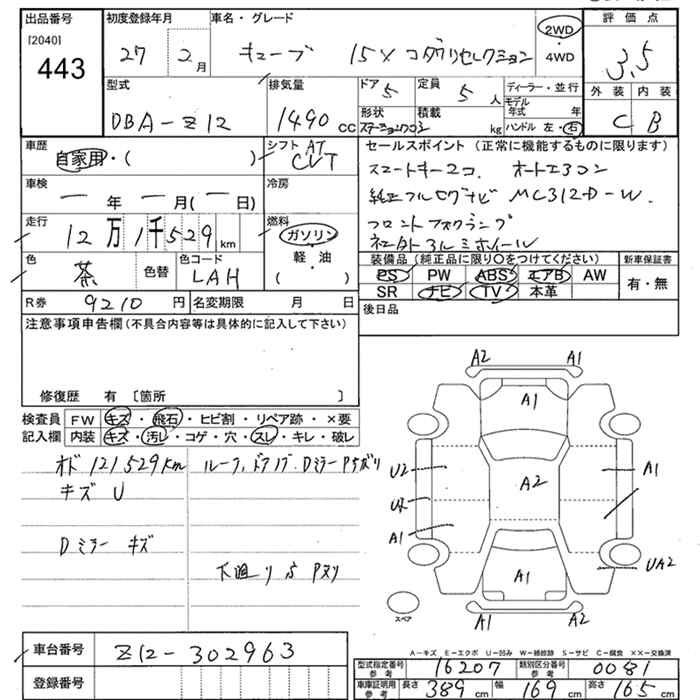 出品番号
[2040]
443
初度登録年月
27 2月
車名・グレード
キューブ 15X コダワリセレクション
2WD
・
4WD
評価点
3.5
外装 内装
C B
型式
DBA-Z12
排気量
1490 CC
ドア 5
定員 5人
形状 ステーションワゴン
積載 kg
ディーラー・並行
モデル年式 年
ハンドル 左・右
車歴
自家用・( )
シフト AT
CVT
車検
ー年ー月(ー日)
冷房
走行
12万1千529km
燃料
ガソリン
・
軽・油
( )
色
茶
色替
色コード
LAH
R券 9210円
名変期限 月 日
セールスポイント (正常に機能するものに限ります)
スマートキー2コ. オートエアコン
純正フルセグナビ MC312D-W.
フロントフォグランプ
社外アルミホイール
装備品(純正品に限り○をつけてください)
PS PW ABS エアB AW
SR ナビ TV 本革
新車保証書
有・無
後日品
注意事項申告欄(不具合内容等は具体的に記入して下さい)
修復歴 有 〔箇所 〕
検査員
記入欄
FW キズ・飛石・ヒビ割・リペア跡・×要
内装 キズ・汚レ・コゲ・穴・スレ・キレ・破レ
オド 121,529km
キズ U
Dミラー キズ
ルーフ、ドアノブ、Dミラー Pチヂリ
下廻り S Pヌリ
A2 A1
A1
U2
A1
A2
A1
A1
UA2
A1 A2
スペア
A-キズ E-エクボ U-凹み W-補修跡 S-サビ C-腐食 ××-交換済
車台番号 Z12-302963
登録番号
型式指定番号 参考 16207
類別区分番号 参考 0081
車庫証明用 参考 長さ 389cm 幅 169cm 高さ 165cm